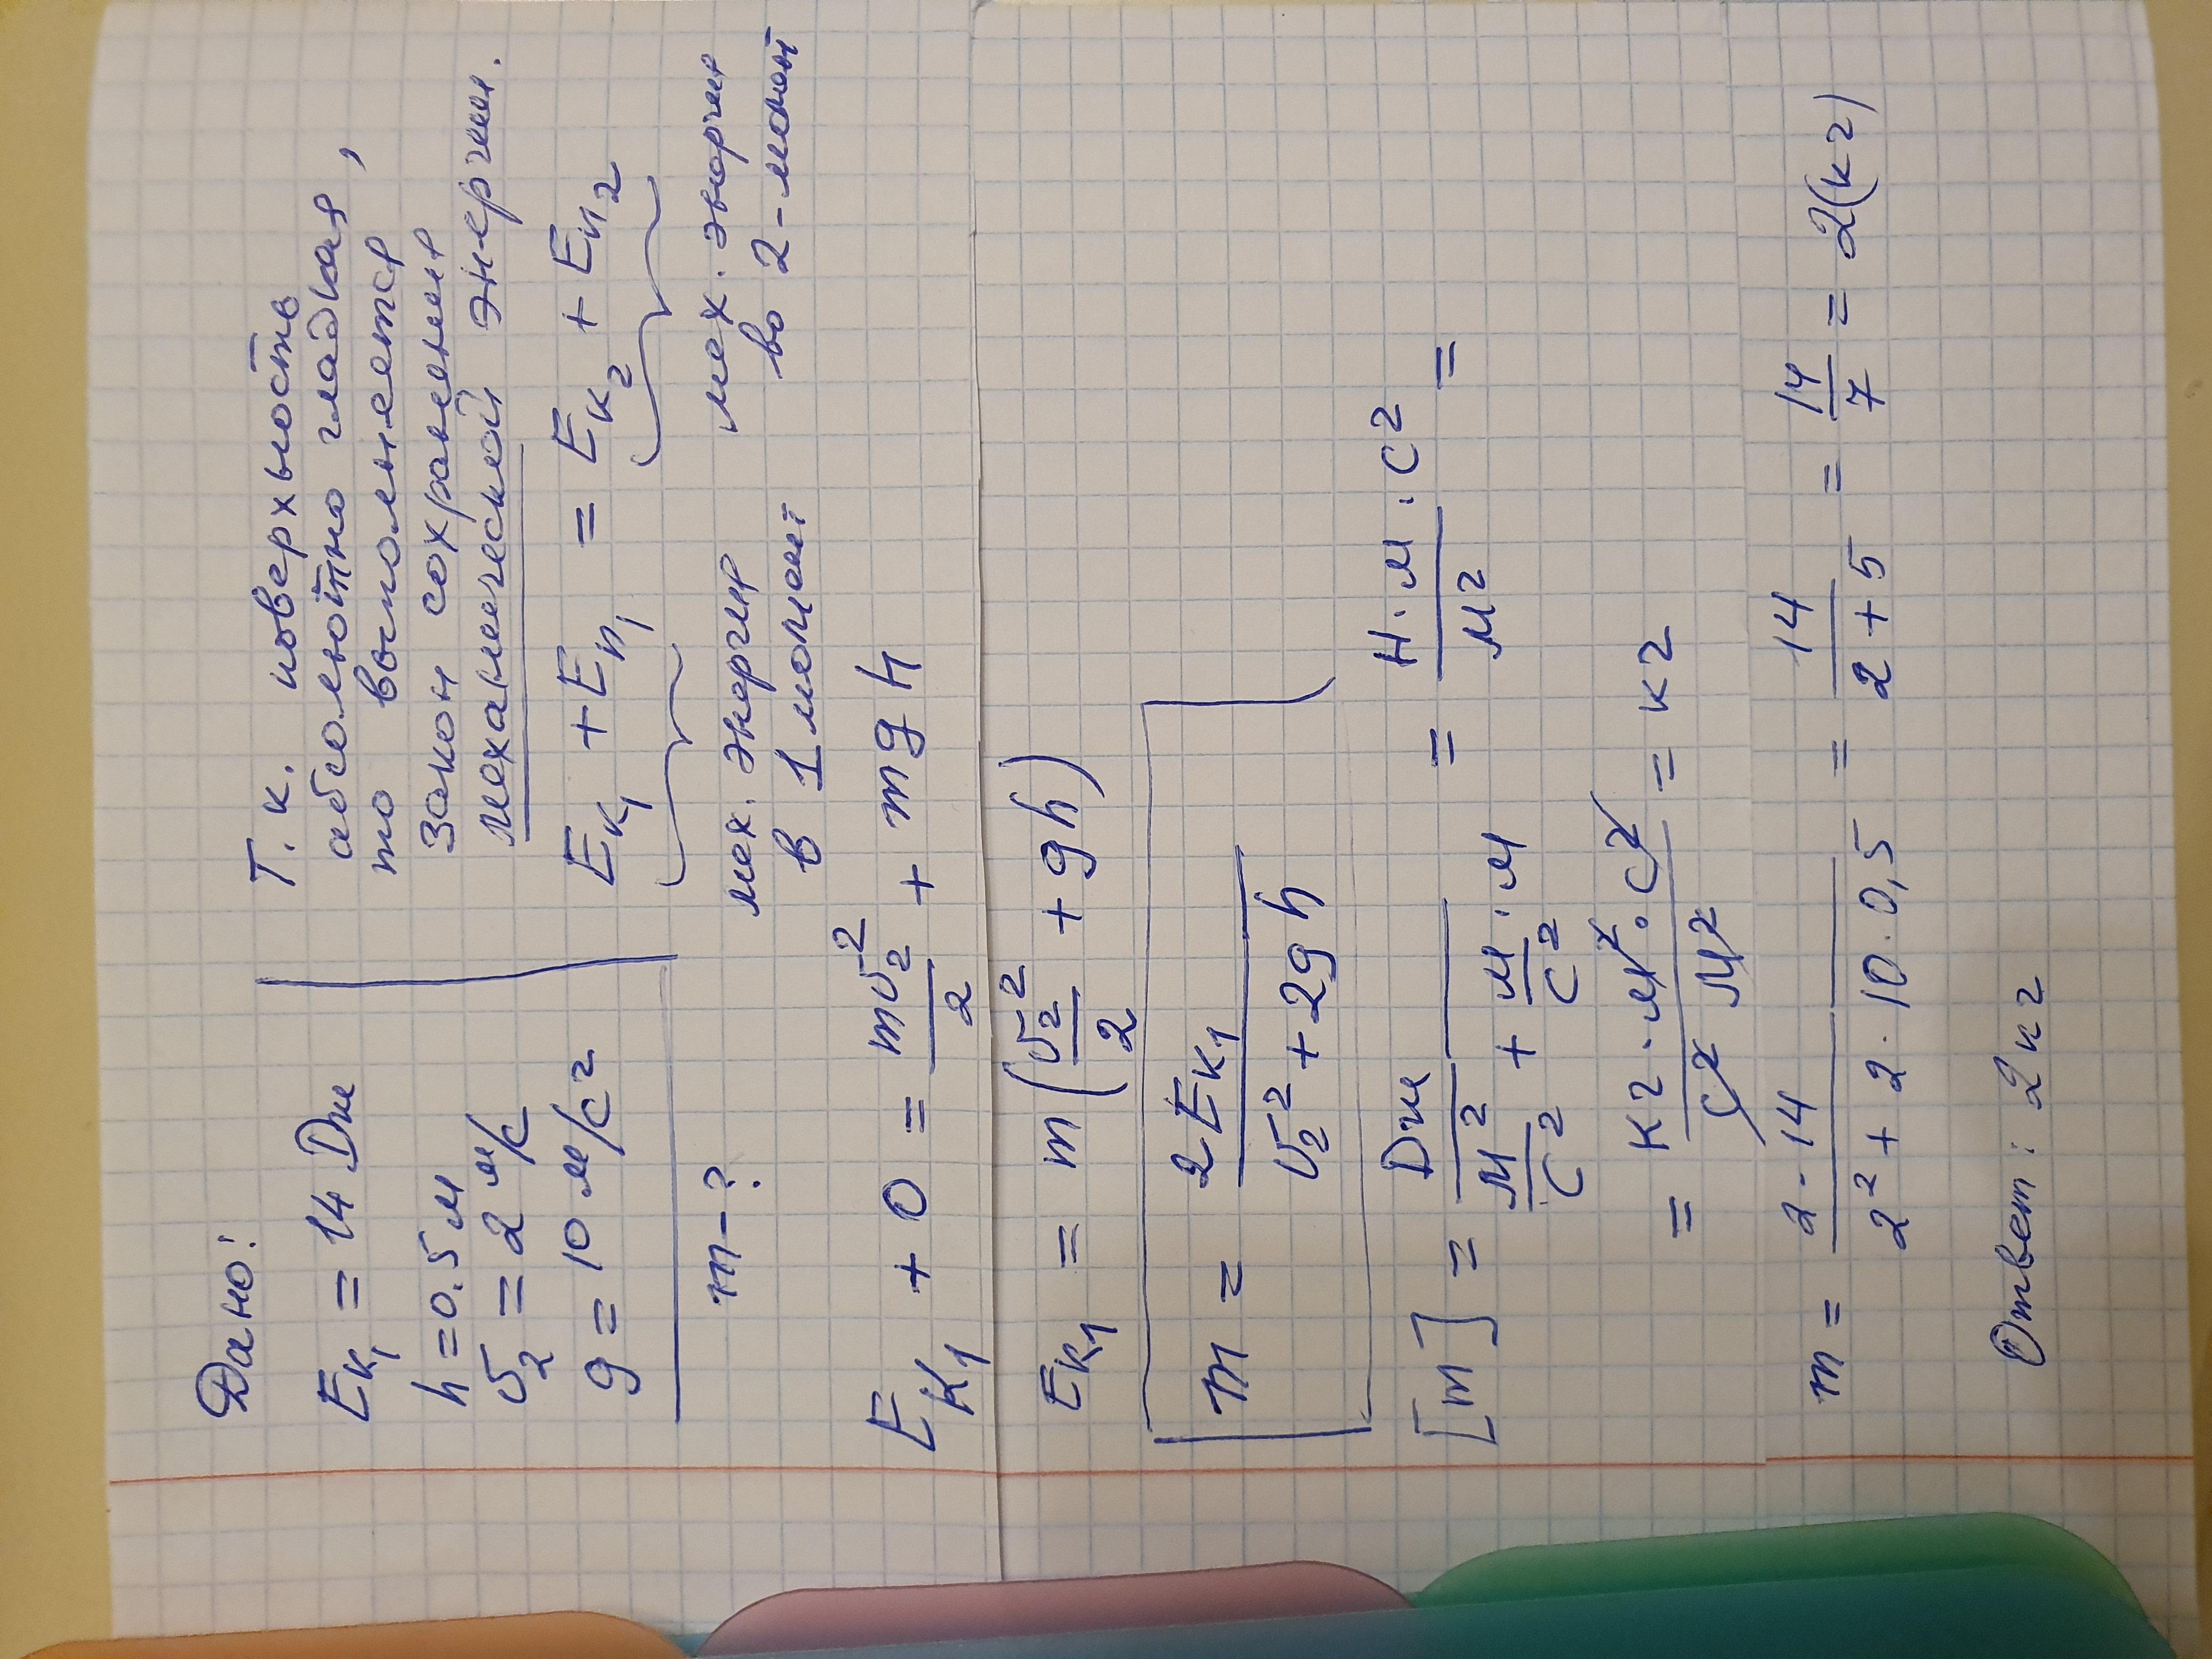 Дано:
Eк₁ = 14 Дж
h = 0.5 м
υ₂ = 2 м/с
g = 10 м/с²
m - ?
Т.к. поверхность
абсолютно гладкая,
то выполняется
закон сохранения
механической энергии.
Eк₁ + Eп₁ = Eк₂ + Eп₂
мех. энергия мех. энергия
в 1 момент во 2-момент
Eк₁ + 0 = mυ₂²/2 + mgh
Eк₁ = m(υ₂²/2 + gh)
m = 2Eк₁/(υ₂² + 2gh)
[m] = Дж/(м²/с² + м/с² · м) = Н·м·с²/м² =
= кг·м²·с²/(с² м²) = кг
m = 2·14/(2² + 2·10·0,5) = 14/(2+5) = 14/7 = 2(кг)
Ответ: 2кг